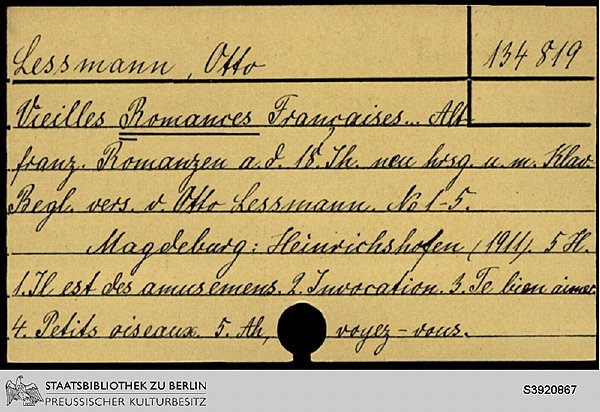 Lessmann, Otto
134 819
Vieilles Romances Françaises... Alt-
franz. Romanzen a. d. 18. Jh. neu hrsg u. m. Klav.
Begl. vers. v. Otto Lessmann. No 1-5.
Magdeburg: Heinrichshofen (1911). 5 H.
1. Il est des amusemens. 2. Invocation. 3. Te bien aimer.
4. Petits oiseaux. 5. Ah, voyez-vous.
STAATSBIBLIOTHEK ZU BERLIN
PREUSSISCHER KULTURBESITZ
S3920867